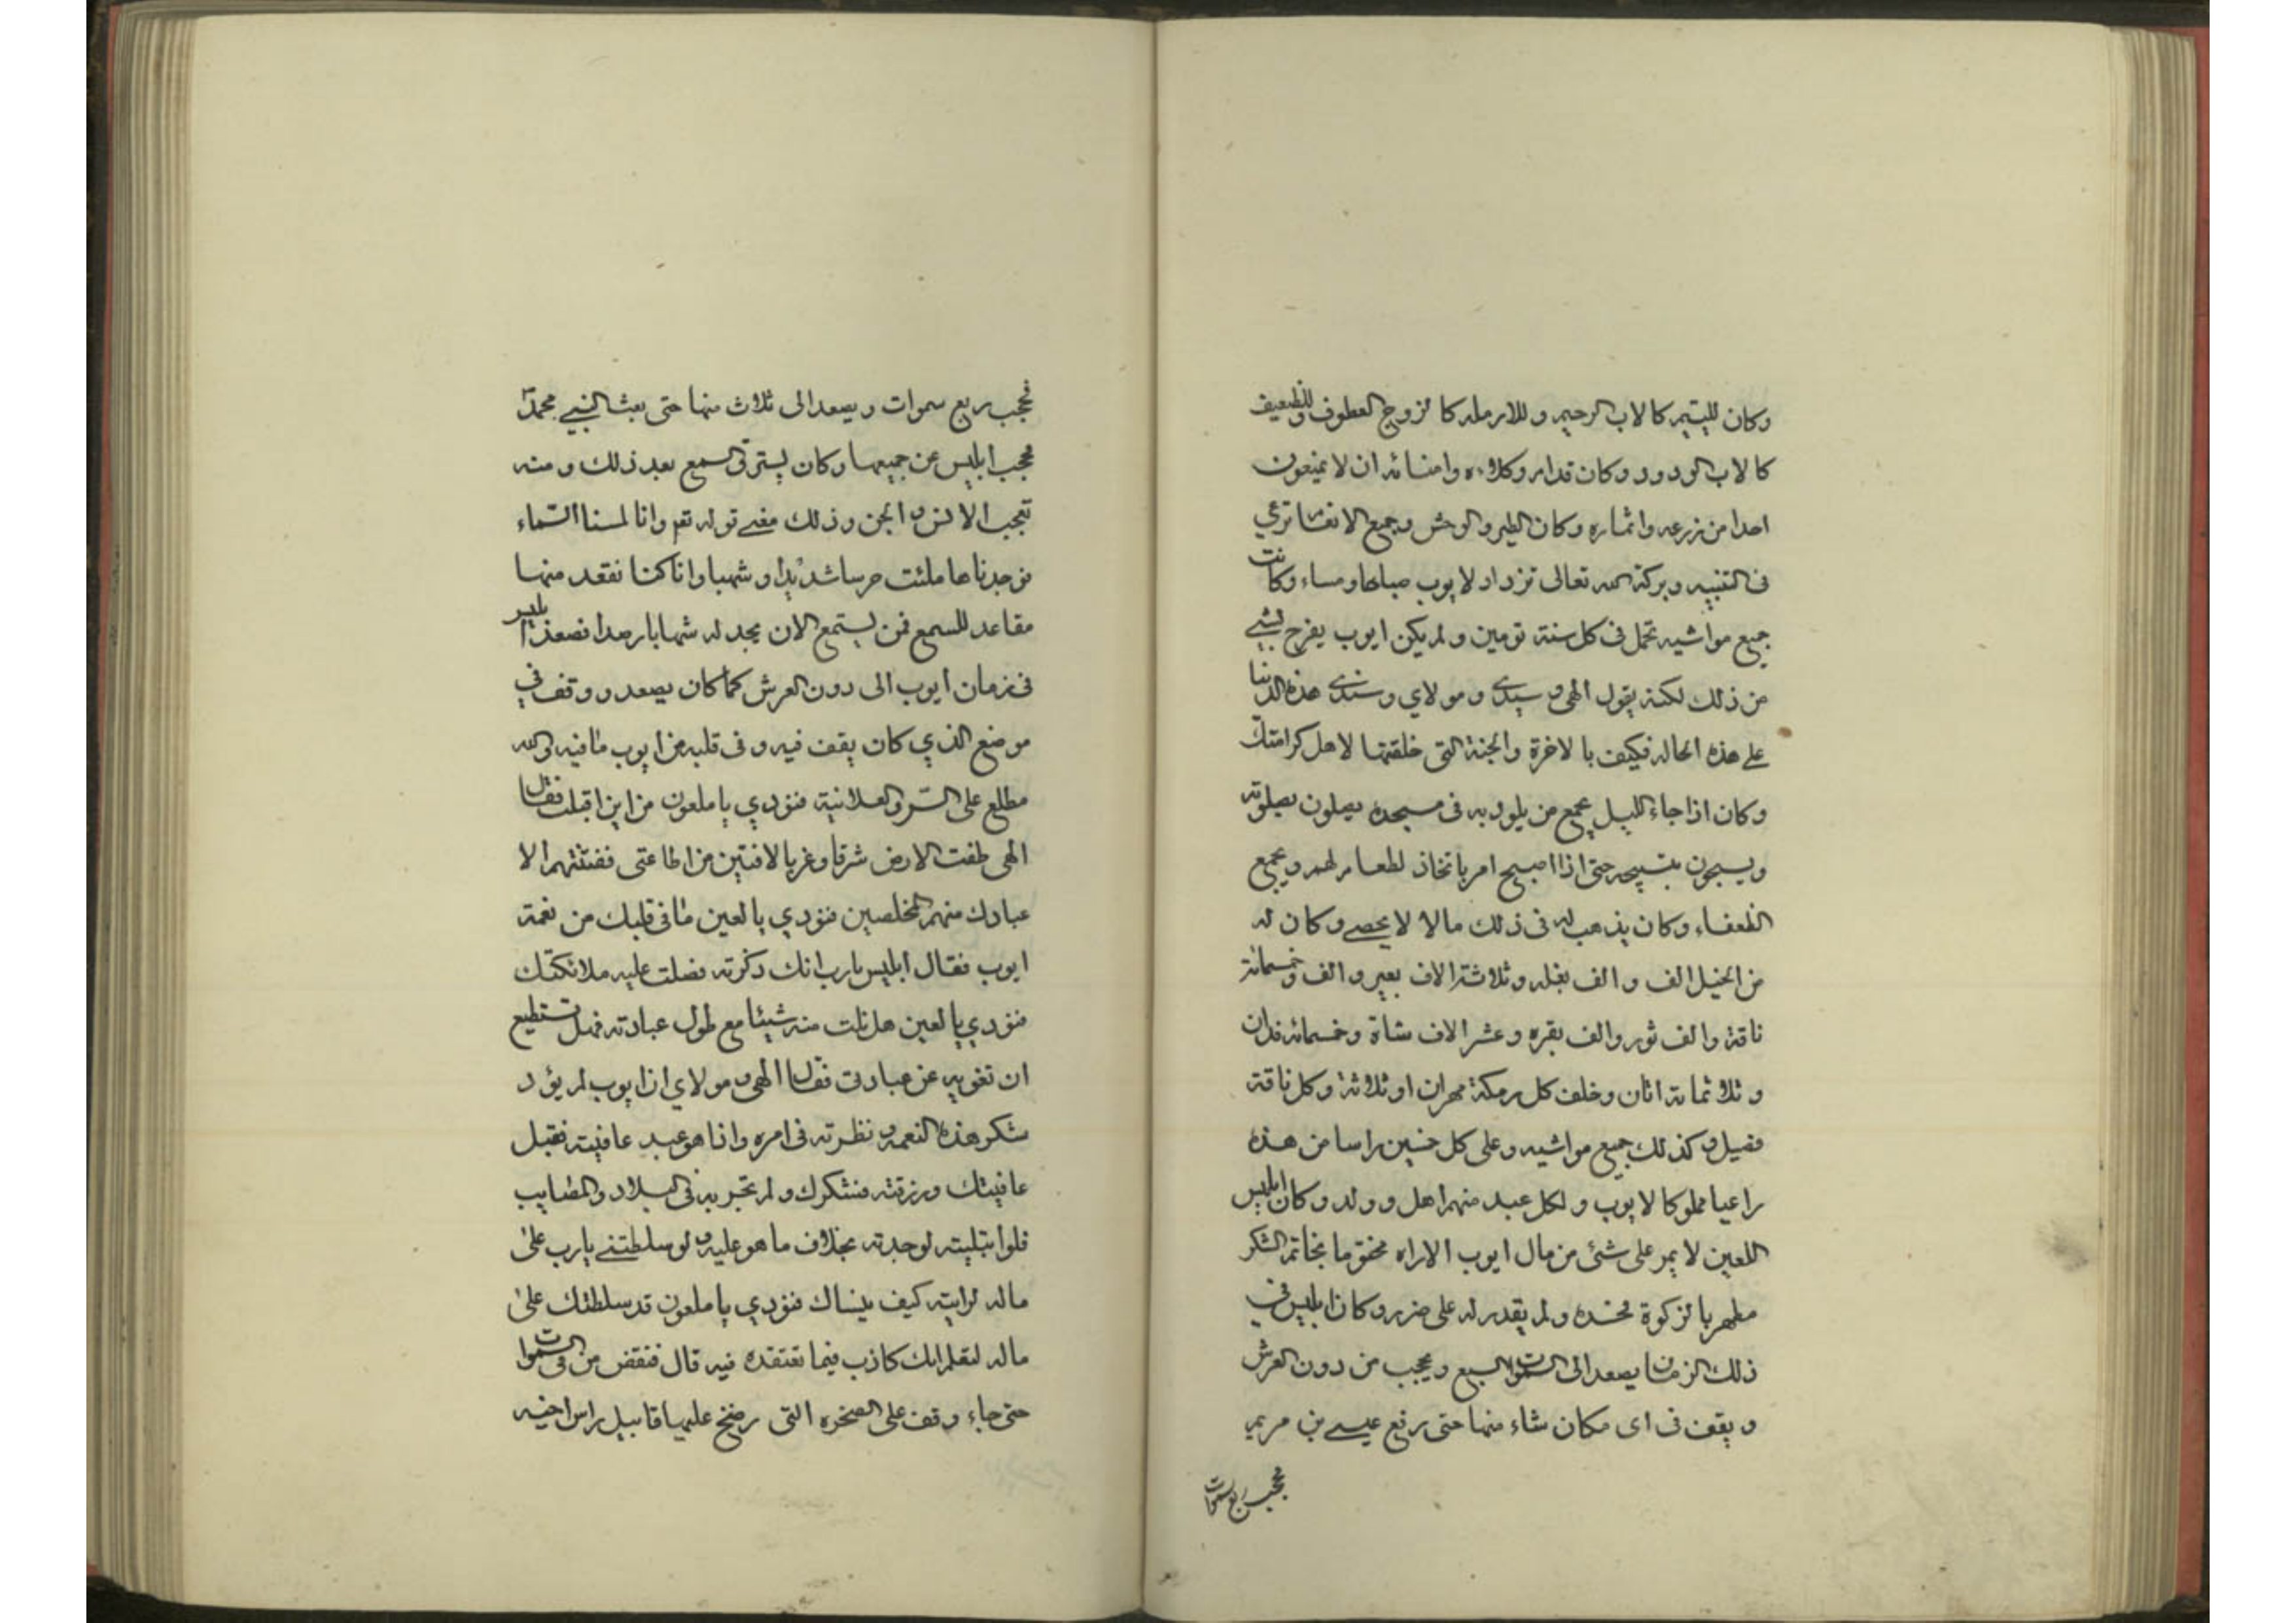 وكان لليتيم كالاب الرحيم و للارمله كا لزوج العطوف وللضعيف
كا لاب الودود وكان قد امر وكلاءه وامنائه ان لا يمنعون
احدا من زرعه واثماره وكان الطير والوحش وجميع الانعام ترعي
فى التنبيه وبركة الله تعالى تزداد لايوب صباحا ومساء وكانت
جميع مواشيه تحمل فى كل سنة تومين ولم يكن ايوب يفرح بشيء
من ذلك لكنه يقول الهى و سيدي و مولاي و سندي هذه الدنيا
على هذه الحاله فكيف با لاخرة والجنة التى خلقتها لاهل كرامتك
وكان اذا جاء الليل يجمع من يلوذ به فى مسجده يصلون بصلوته
ويسبحون بتسبيحه حتى اذا اصبح امر باتخاذ لطعام لهم ويجمع
الظعفاء وكان يذهب له فى ذلك مالا لا يحصى وكان له
من الخيل الف و الف بغله وثلاثة الاف بعير والف وخمسمائة
ناقة والف ثور والف بقره وعشر الاف شاة وخمسمائه فدان
و ثلاثمائة اتان وخلف كل رمكة مهران او ثلاثة وكل ناقة
فصيل وكذلك جميع مواشيه وعلى كل خمسين راسا من هذه
راعيا مملوكا لايوب و لكل عبد منهم اهل وولد وكان ابليس
اللعين لا يمر على شئ من مال ايوب الا راه مختوما بخاتم الشكر
مطهر با لزكوة فحسده ولم يقدر له على ضرر وكان ابليس فى
ذلك الزمان يصعد الى السموات السبع ويحجب من دون العرش
و يقف فى اى مكان شاء منها حتى رفع عيسى بن مريم
فحجب ربع سموات
فحجب ربع سموات ويصعد الى ثلاث منها حتى بعث النبي محمد
فحجب ابليس عن جميعها وكان يسترق السمع بعد ذلك ومنه
تعجب الانس و الجن وذلك معنى قوله تعم وانا لمسنا السماء
فوجدناها ملئت حرسا شديدا وشهبا وانا كنا نقعد منها
مقاعد للسمع فمن يستمع الان يجد له شهابا رصدا فصعد ابليس
فى زمان ايوب الى دون العرش كما كان يصعد ووقف في
موضع الذي كان يقف فيه و فى قلبه من ايوب ما فيه والله
مطلع على السر والعلانية فنودي يا ملعون من اين اقبلت فقال
الهى طفت الارض شرقا وغربا لافتين من اطاعتى ففتنتهم الا
عبادك منهم المخلصين فنودي يا لعين ما فى قلبك من نعمة
ايوب فقال ابليس يارب انك ذكرته فصلت عليه ملائكتك
فنودي يا لعين هل نلت منه شيئا مع طول عبادته فهل تستطيع
ان تغويه عن عبادتى فقال الهى و مولاي ان ايوب لم يؤد
شكر هذه النعمه و نظرته فى امره وانا هو عبد عافيته فقبل
عافيتك ورزقته فشكرك ولم تجربه فى البلاء والمصايب
فلو ابتليته لوجدته بخلاف ما هو عليه و لو سلطتنى يارب على
ماله لرايته كيف ينساك فنودي يا ملعون قد سلطتك على
ماله لتعلم انك كاذب فيما تعتقده فيه قال فنقض من فى السموات
حتى جاء وقف على الصخره التى رضخ عليها قابيل راس اخيه